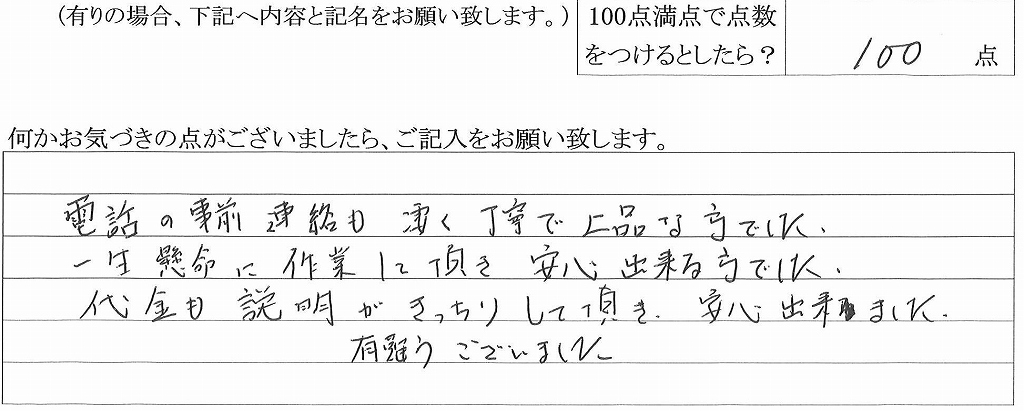 (有りの場合、下記へ内容と記名をお願い致します。)
100点満点で点数
をつけるとしたら？
100 点
何かお気づきの点がございましたら、ご記入をお願い致します。
電話の事前連絡も凄く丁寧で上品な方でした.
一生懸命に作業して頂き 安心出来る方でした.
代金も説明がきっちりして頂き. 安心出来ました.
有難うございました